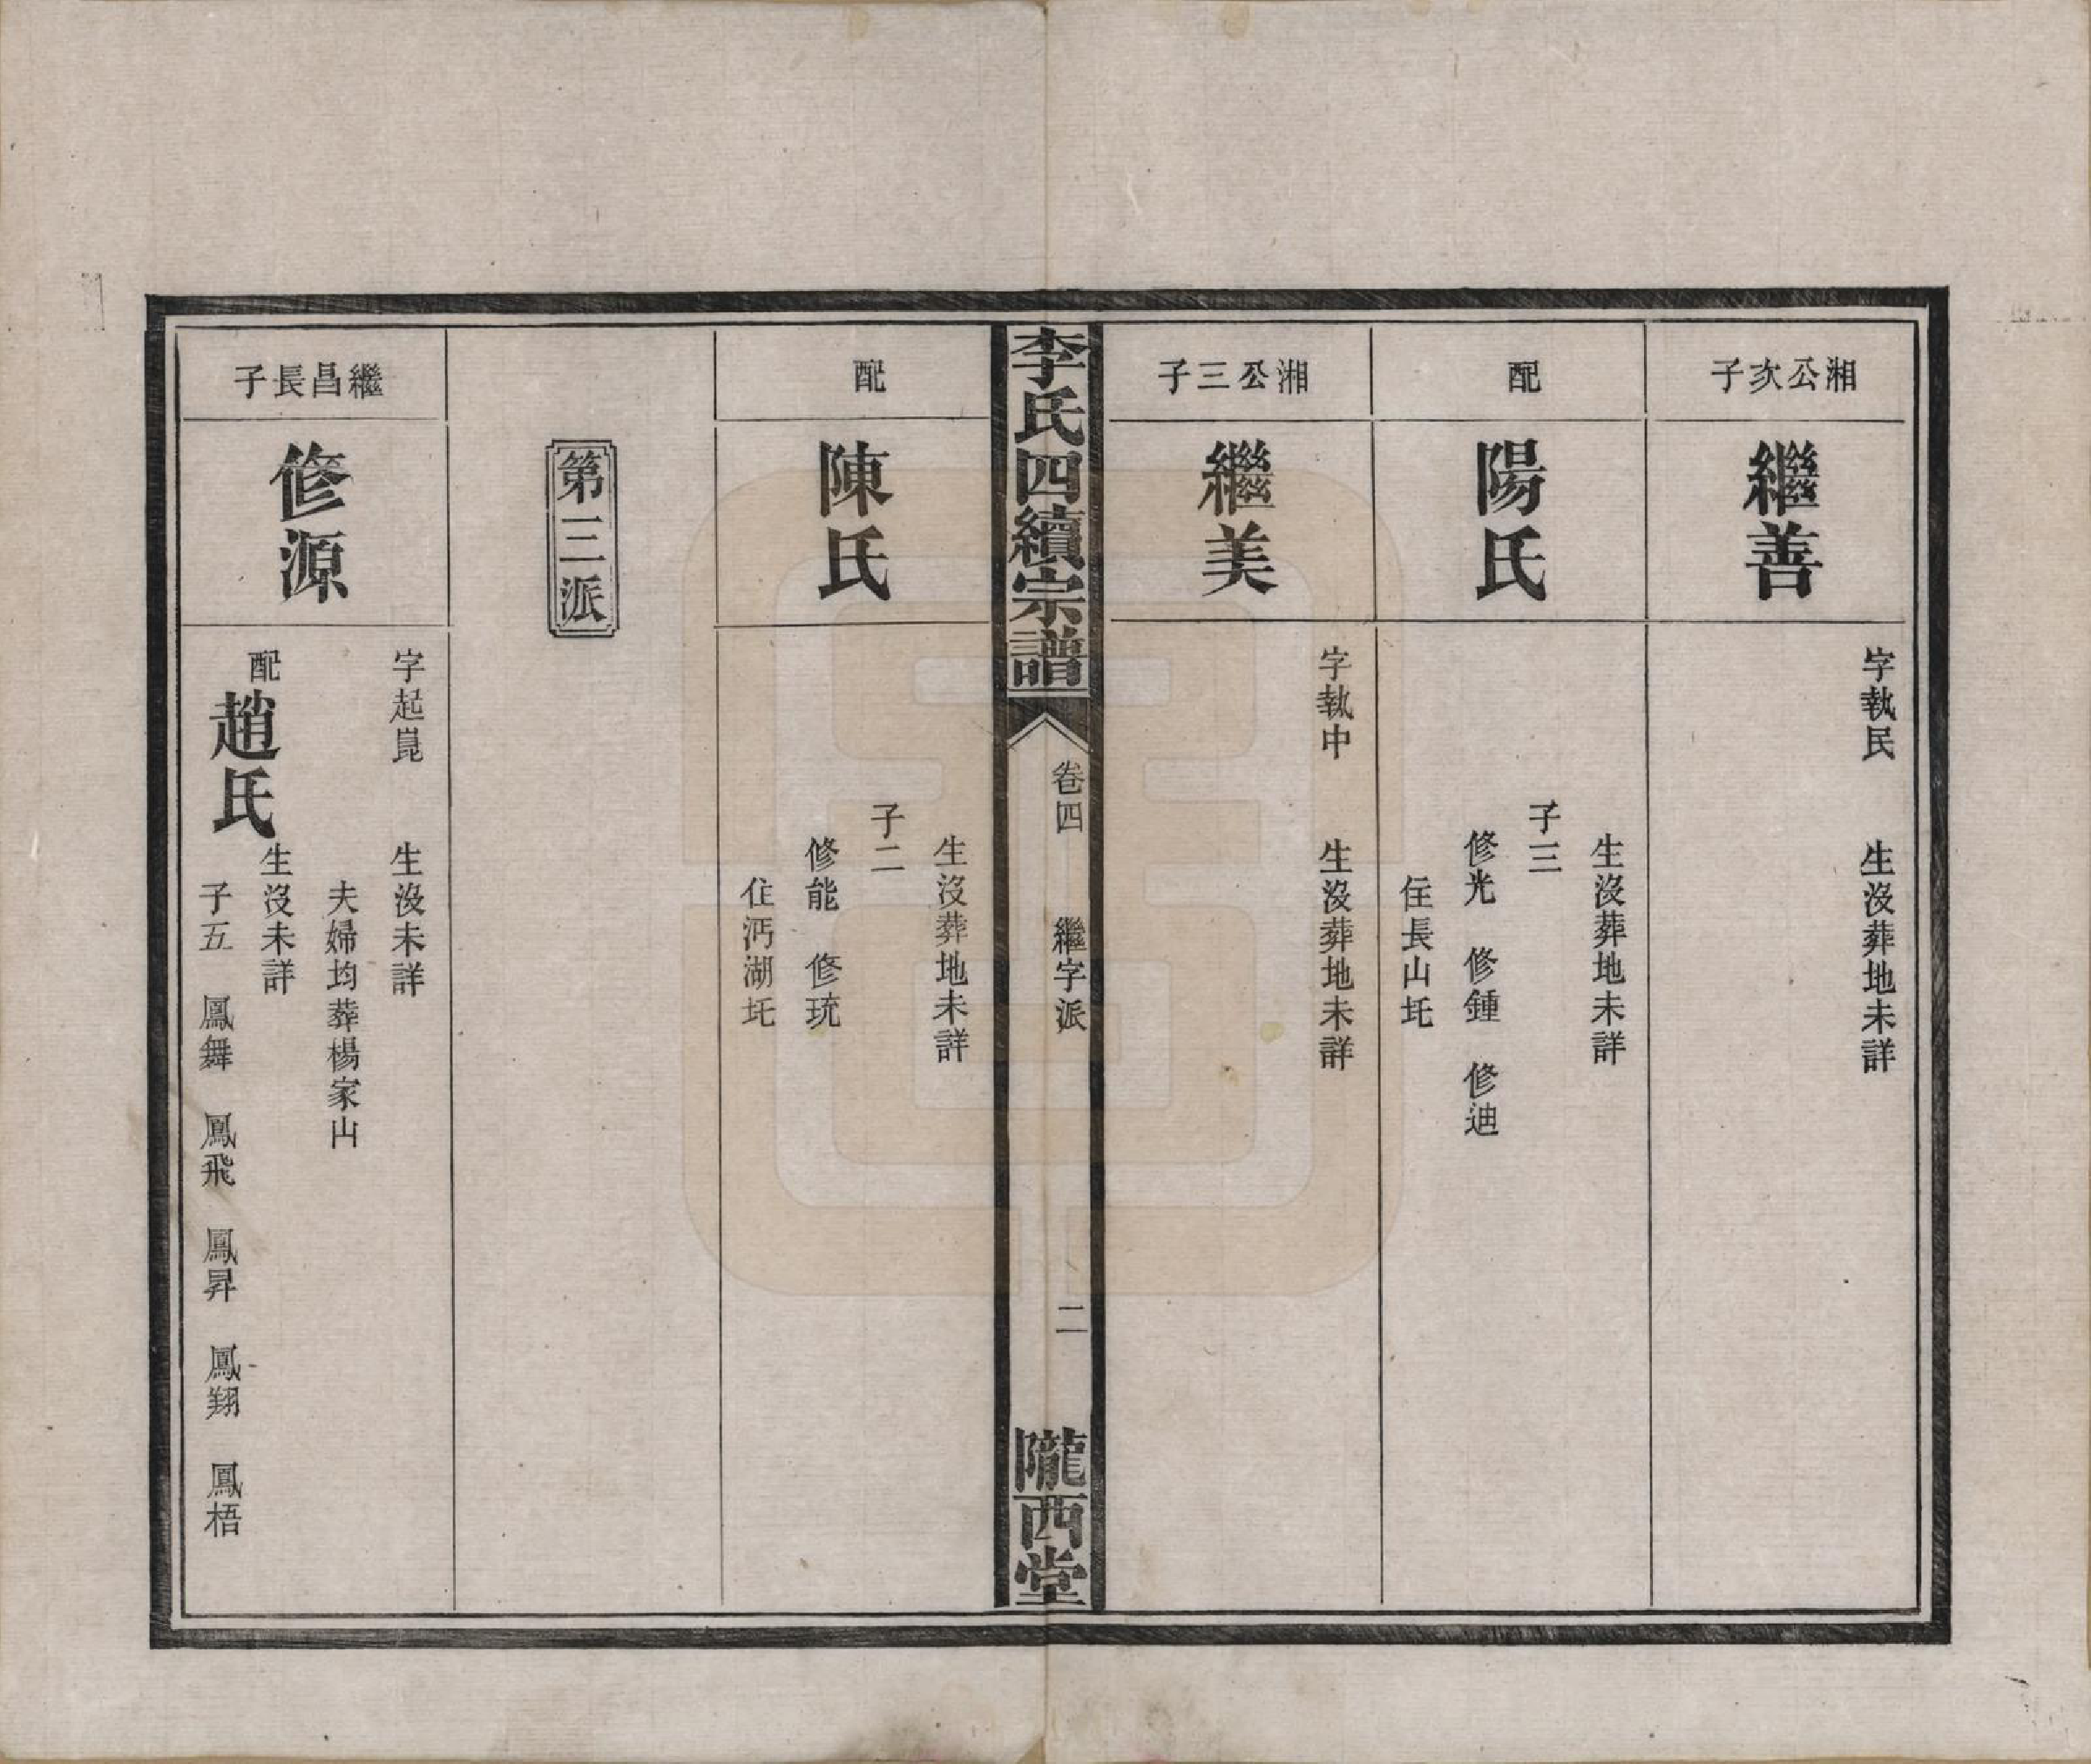 湘公次子
繼善
字執民
生沒葬地未詳
配
陽氏
生沒葬地未詳
子三
修光 修鍾 修迪
住長山圫
湘公三子
繼美
字執中
生沒葬地未詳
李氏四續宗譜
卷四
繼字派
二
隴西堂
配
陳氏
生沒葬地未詳
子二
修能 修琉
住沔湖圫
第三派
繼昌長子
修源
字起崑
生沒未詳
夫婦均葬楊家山
配趙氏
生沒未詳
子五 鳳舞 鳳飛 鳳昇 鳳翔 鳳梧